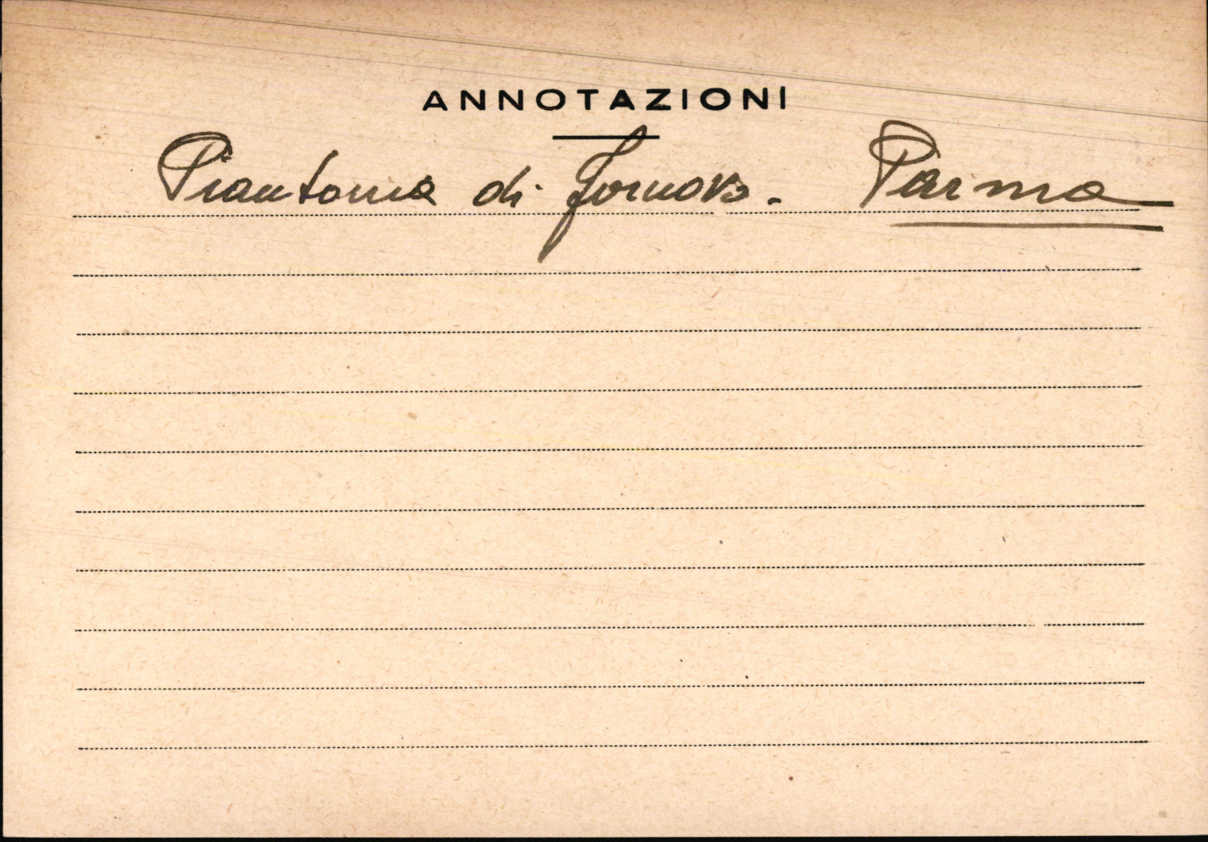 ANNOTAZIONI
Piantonia di Fornovo. Parma